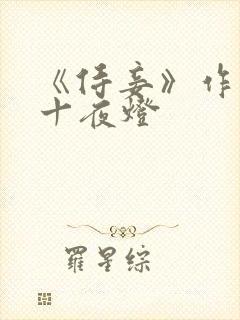 《侍妾》作
十夜燈
羅星綜